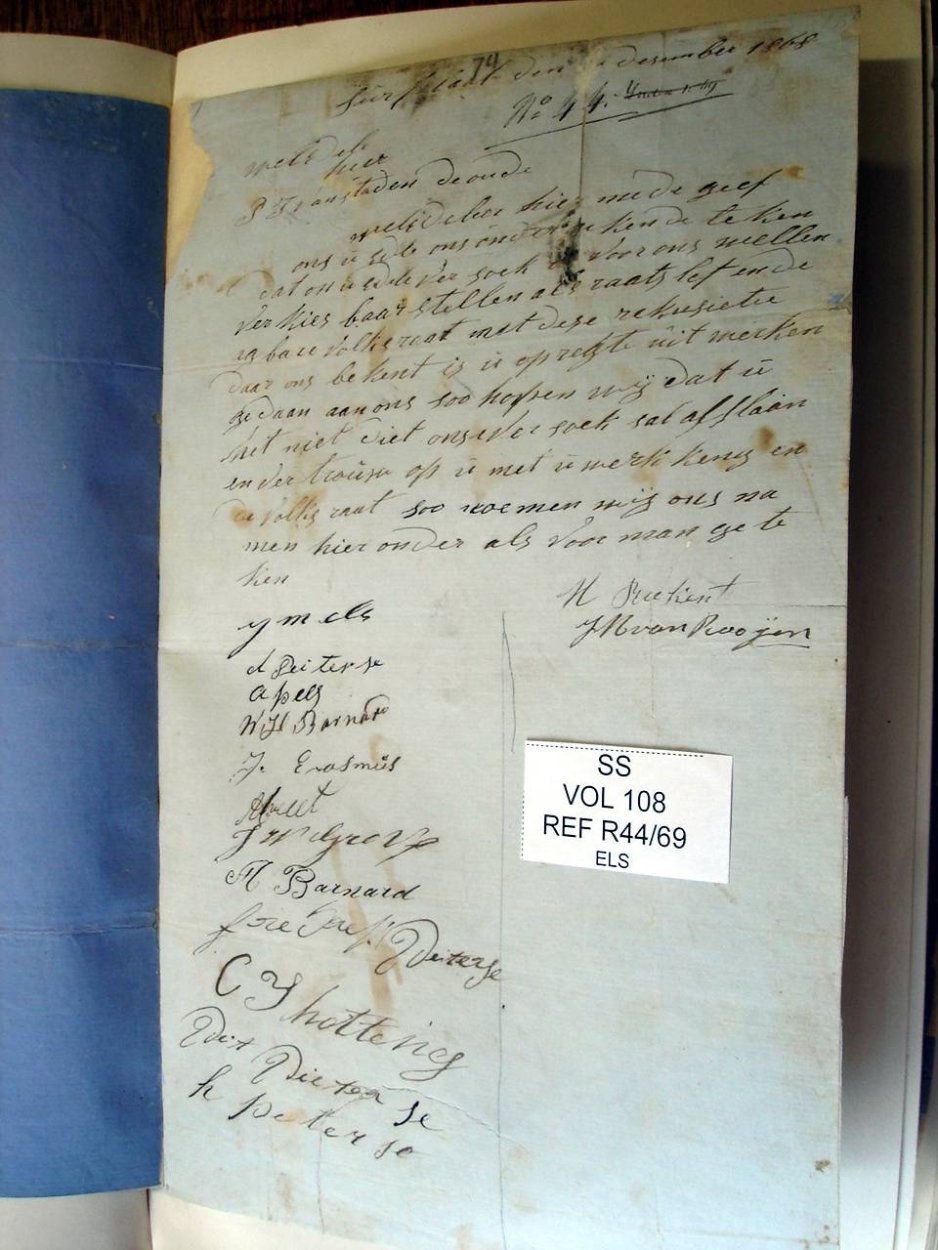 74
den desember 1868
No 44.
weled
heer
P J van staden de oude
weledeler hier mede geef
ons u ede ons onder tekende te ken
dat on u edele ver soek voor ons wellen
verkies baar stellen als raats lef en de
volksraat met dese rekwesietie
daar ons bekent is u opregte uit werken
gedaan aan ons soo hopen wij dat u
het niet diet onse ver soek sal af slaan
en ver trouw op u met u werk keng en
de volks raat soo noemen wij ons na
men hier onder als voor man ge te
ken
H
J H van Rooijen
y m els
d Peiterse
a pels
W H Barnard
J. Erasmus
J W Grove
A Barnard
Pieterse
C J hatting
Piet Pieter se
h peter se
SS
VOL 108
REF R44/69
ELS